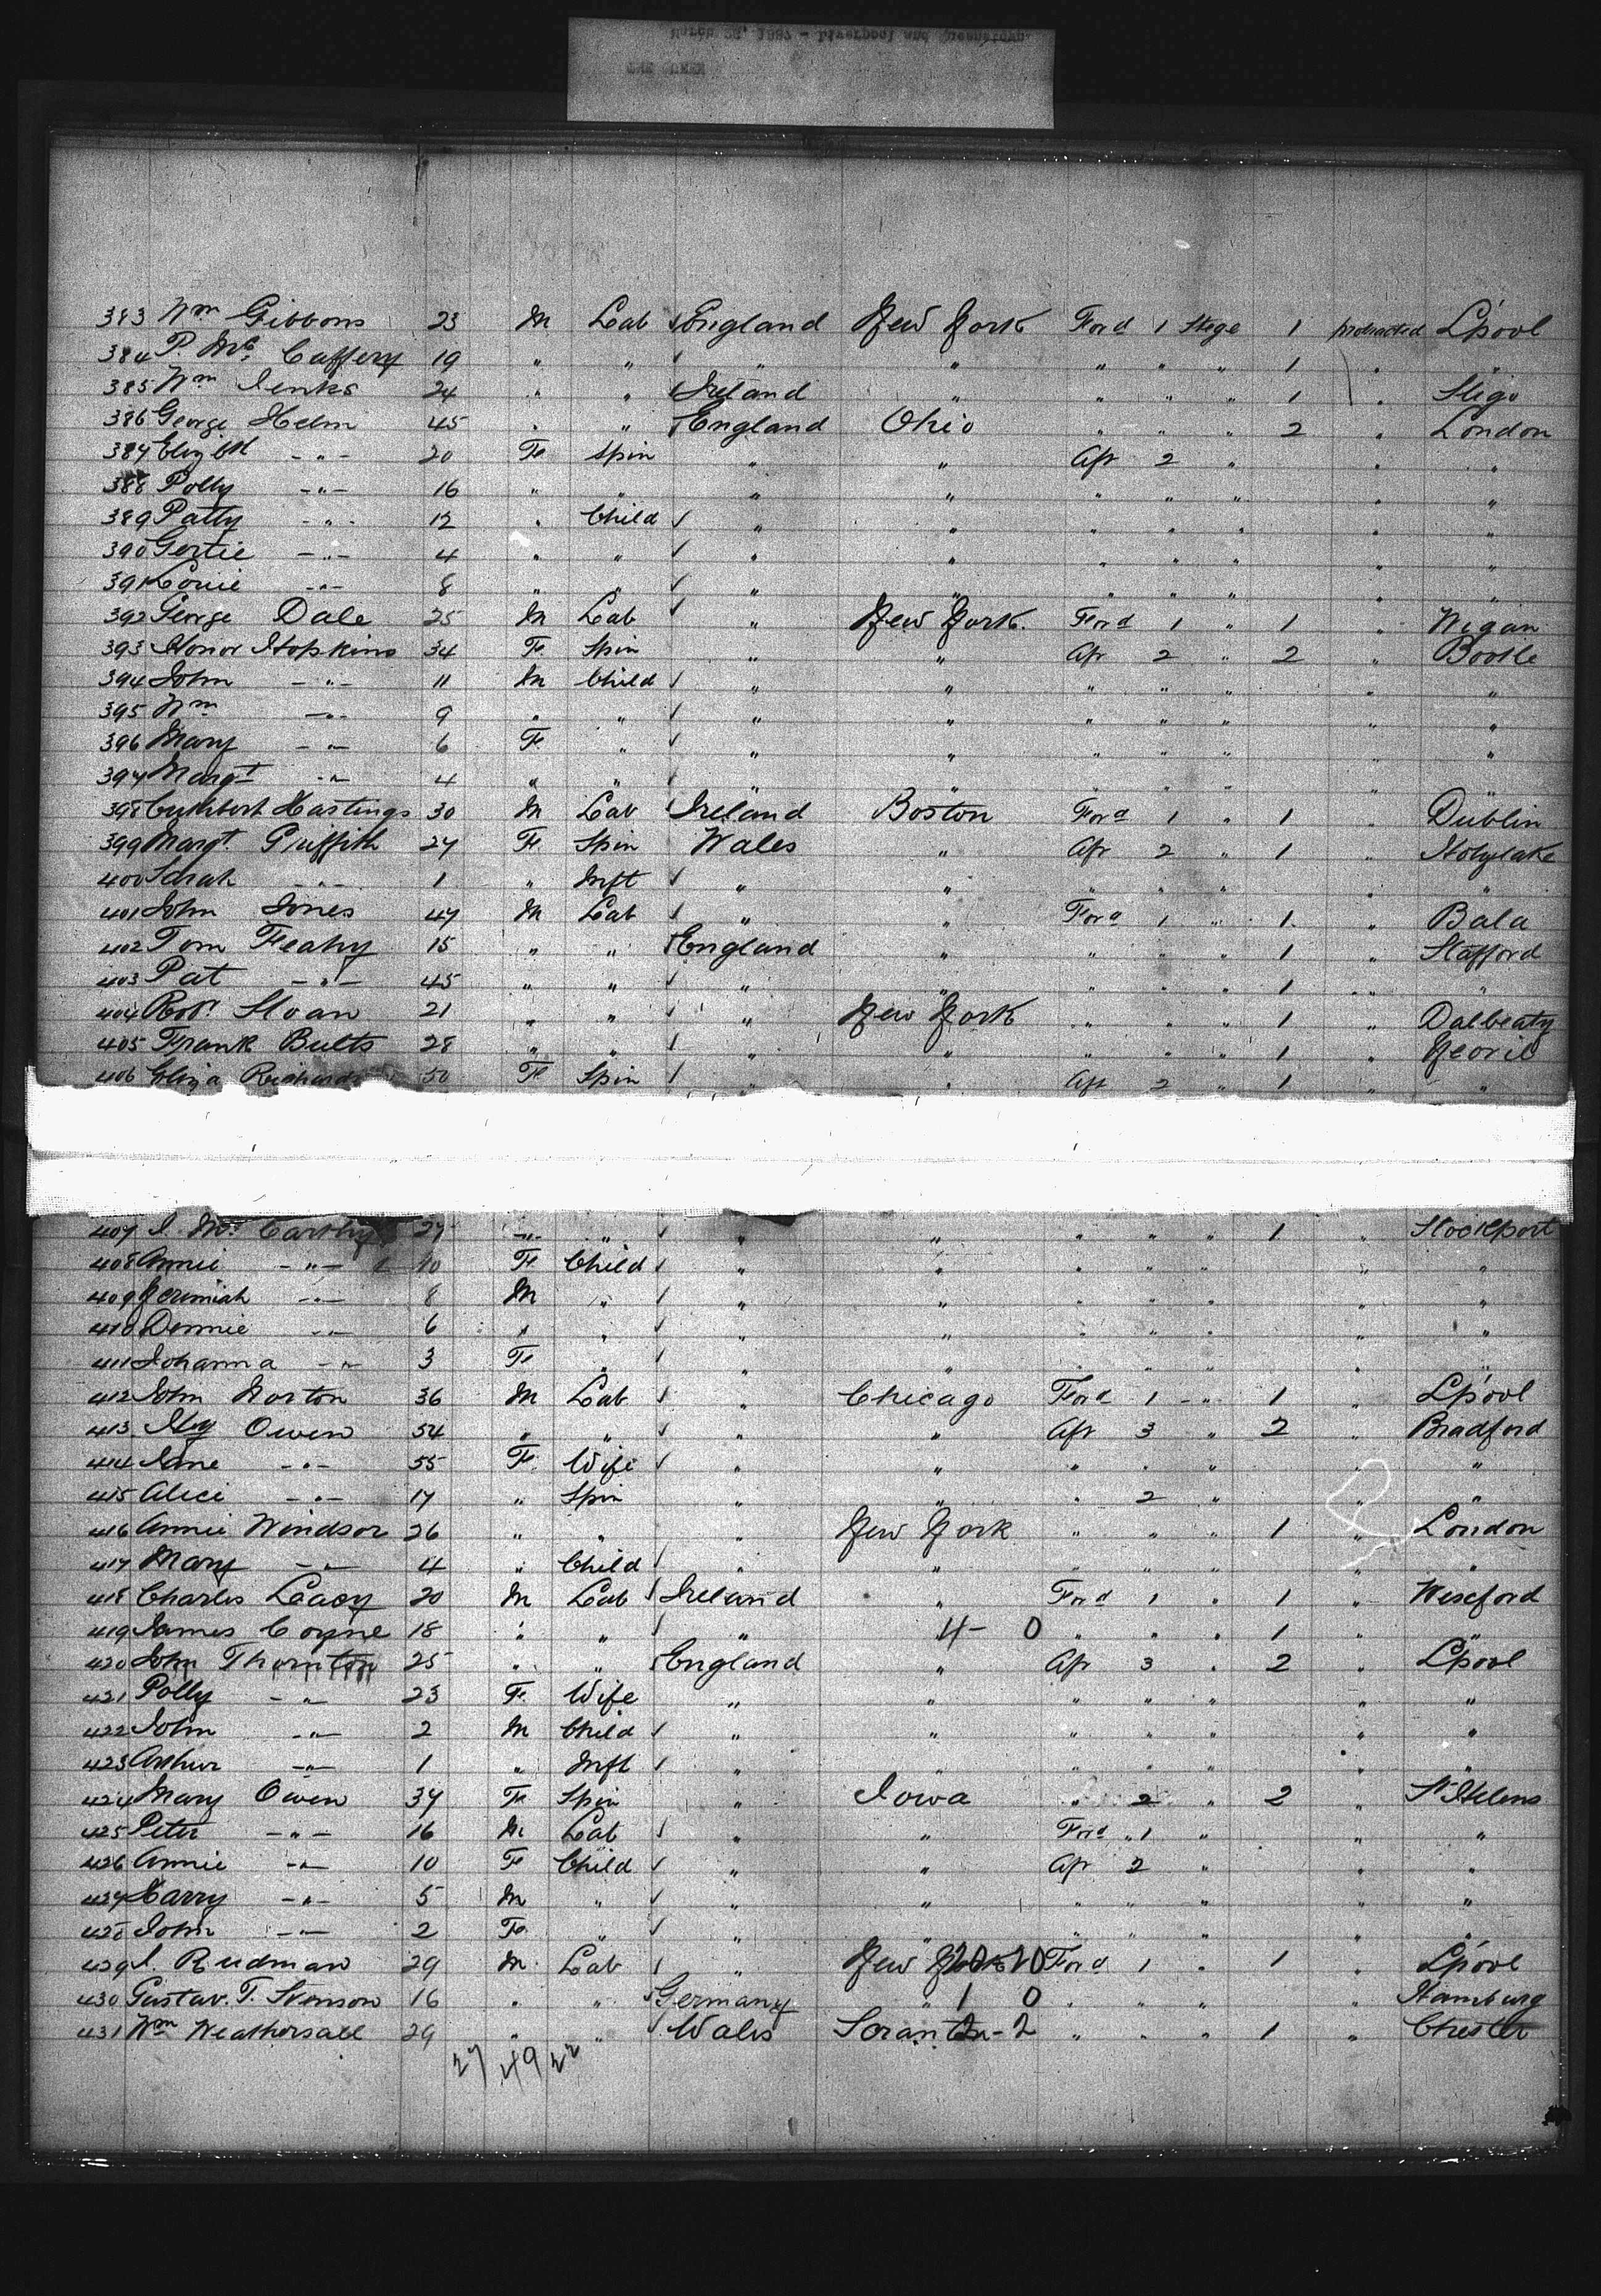 March 28, 1887 - Liverpool and Queenstown.
THE QUEEN
383 Wm Gibbons 23 M Lab England New York Ford 1 Stge 1 protracted L'pool
384 P. Mc Caffery 19 " " " " " " " 1 " "
385 Wm Jenks 24 " " Ireland " " " " 1 " Sligo
386 George Helm 45 " " England Ohio " " " 2 " London
387 Elizbth -"- 20 Fe Spin " " Aft 2 " " "
388 Polly -"- 16 " " " " " " " " "
389 Patty -"- 12 " Child " " " " " " "
390 Gertie -"- 4 " " " " " " " " "
391 Louie -"- 8 " " " " " " " " "
392 George Dale 25 M Lab " New York. Ford 1 " 1 " Wigan
393 Honor Hopkins 34 Fe Spin " " Aft 2 " 2 " Bootle
394 John -"- 11 M Child " " " " " " "
395 Wm -"- 9 " " " " " " " " "
396 Mary -"- 6 Fe " " " " " " " "
397 Margt -"- 4 " " " " " " " " "
398 Cuthbert Hastings 30 M Lab Ireland Boston Ford 1 " 1 " Dublin
399 Margt. Griffith 27 Fe Spin Wales " Aft 2 " 1 " Hoylake
400 Sarah -"- 1 " Inft " " " " " " "
401 John Jones 47 M Lab " " Ford 1 " 1 " Bala
402 Tom Feahy 15 " " England " " " " 1 " Stafford
403 Pat -"- 45 " " " " " " " 1 " "
404 Robt. Sloan 21 " " " New York " " " 1 " Dalbeaty
405 Frank Butts 28 " " " " " " " 1 " Yeovil
406 Eliza 50 Fe Spin " " Aft 2 " 1 " "
407 J. Mc Carthy 27 -"- " " " " " " 1 " Stockport
408 Annie -"- 10 Fe Child " " " " " " "
409 Jerimiah -"- 8 M " " " " " " " "
410 Dennie -"- 6 " " " " " " " " "
411 Johanna -"- 3 Fe " " " " " " " "
412 John Norton 36 M Lab " Chicago Ford 1 -"- 1 " L'pool
413 Hy Owen 54 " " " " Aft 3 " 2 " Bradford
414 Jane -"- 55 Fe Wife " " " " " " "
415 Alice -"- 17 " Spin " " " 2 " " "
416 Annie Windsor 26 " " " New York " " " 1 " London
417 Mary -"- 4 " Child " " " " " " "
418 Charles Leacy 20 M Lab Ireland " Ford 1 " 1 " Wexford
419 James Coyne 18 " " " 4 - 0 " " " 1 " "
420 John Thornton 25 " " England " Aft 3 " 2 " L'pool
421 Polly -"- 23 Fe Wife " " " " " " "
422 John -"- 2 M Child " " " " " " "
423 Arthur -"- 1 " Inft " " " " " " "
424 Mary Owen 34 Fe Spin " Iowa " 2 " 2 " St Helens
425 Peter -"- 16 M Lab " " Ford "1 " " "
426 Annie -"- 10 Fe Child " " Aft 2 " " "
427 Harry -"- 5 M " " " " " " " "
428 John -"- 2 Fe " " " " " " " "
429 J. Rudman 29 M Lab " New York Ford 1 " 1 " L'pool
430 Gustav. T. Svenson 16 " " Germany " 1 0 " " " " Hamburg
431 Wm Weathersall 29 " " Wales Scranton - 2 " " " 1 " Chester
27 49 22